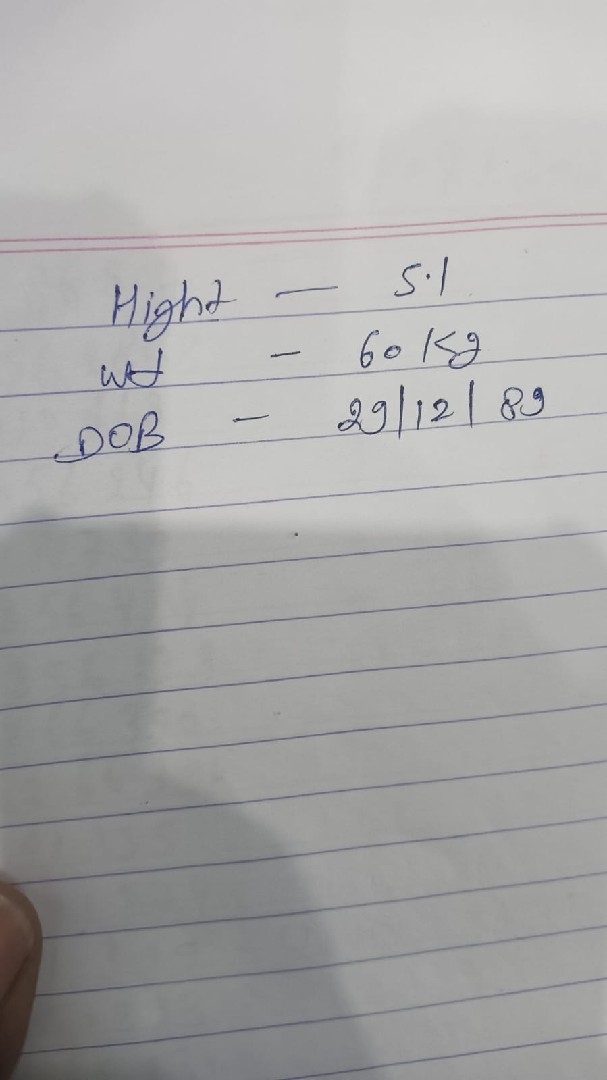 Hight — 5.1
wt - 60 Kg
DOB - 29/12/89